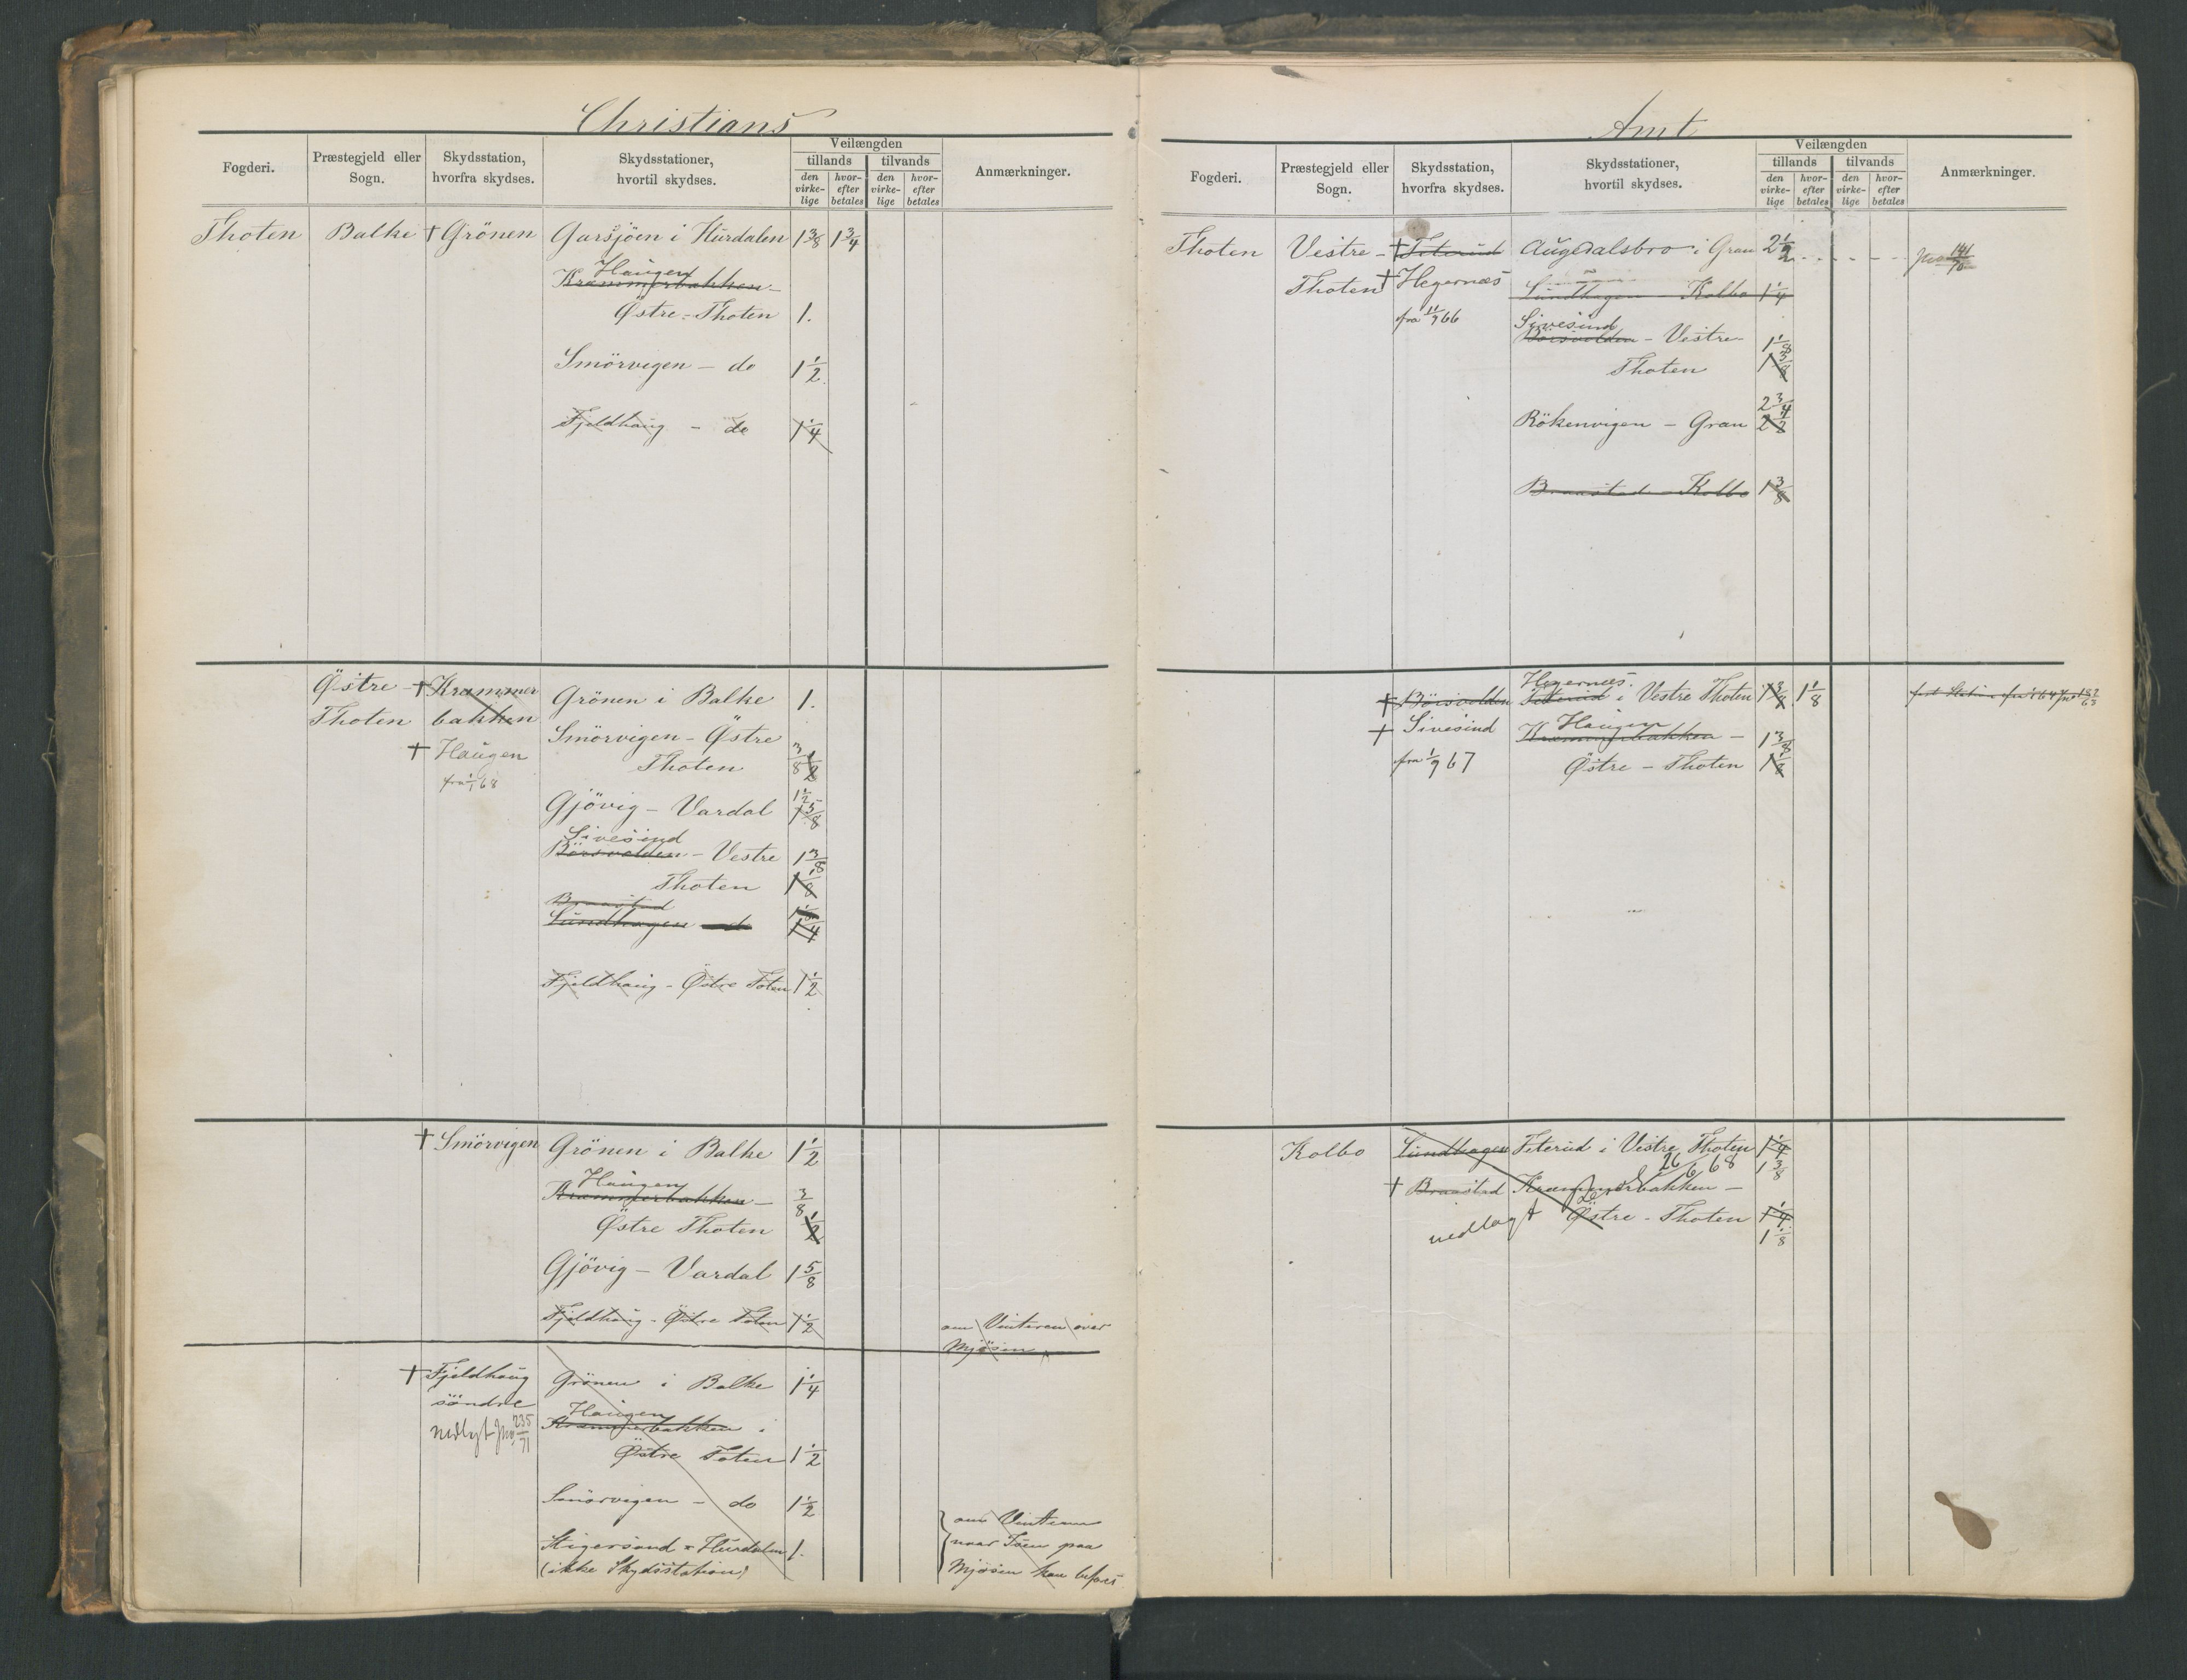 Christians
Fogderi.
Præstegjeld eller
Sogn.
Skydsstation,
hvorfra skydses.
Skydsstationer,
hvortil skydses.
Veilængden
tillands
tilvands
den
virke-
lige
hvor-
efter
betales
den
virke-
lige
hvor-
efter
betales
Anmærkninger.
Thoten Balke † Grönen Garsjöen i Hurdalen 1 3/8 1 3/4
Haugen
Kræmmerbakken -
Østre-Thoten 1.
Smörvigen - do 1 1/2
Fjeldhaug - do 1 1/4
Østre - † Kræmmer Grönen i Balke 1.
Thoten bakken
Smörvigen - Østre
† Haugen Thoten 3/8 1/2
fra 1/1 68
Gjövig - Vardal 1 1/2
1 5/8
Sivesind
Börsvolden - Vestre 1 3/8
Thoten 1 1/8
Braastad
Lundhagen do 1 1/4
Fjeldhaug - Østre Toten 1 1/2
† Smörvigen Grönen i Balke 1 1/2
Haugen
Kræmmerbakken - 3/8
Østre Thoten 1/2
Gjövig - Vardal 1 5/8
Fjeldhaug - Østre Toten 1 1/2 om Vinteren over
Mjösen
† Fjeldhaug Grönen i Balke 1 1/4
söndre
Haugen
nedlagt Jno 235/71 Kræmmerbakken i
Østre Toten 1 1/2
Smörvigen - do 1 1/2
Stigersand - Hurdalen 1.
(ikke Skydsstation)
om Vinteren
naar Isen paa
Mjösen kan befares
Amt
Fogderi.
Præstegjeld eller
Sogn.
Skydsstation,
hvorfra skydses.
Skydsstationer,
hvortil skydses.
Veilængden
tillands
tilvands
den
virke-
lige
hvor-
efter
betales
den
virke-
lige
hvor-
efter
betales
Anmærkninger.
Thoten Vestre - † Teterud Augedalsbro i Gran 2 1/2 Jno 141/70
Thoten † Hegernæs Lundhagen - Kolbo 1 1/4
fra 11/9 66 Sivesind
Börsvolden - Vestre 1 1/8
Thoten 1 3/8
2 3/4
Rökenvigen - Gran 2 1/2
Braastad - Kolbo 1 3/8
Hegernæs.
† Börsvolden Teterud i Vestre Thoten 1 3/8 1 1/8
† Sivesind Haugen
Kræmmerbakken - 1 3/8
fra 1/9 67 Østre - Thoten 1 1/8
Kolbo Lundhagen Teterud i Vestre Thoten 1 1/4
1 3/8
† Braastad Kræmmerbakken -
nedlagt 26/6 68
Østre - Thoten 1 1/4
1 1/8